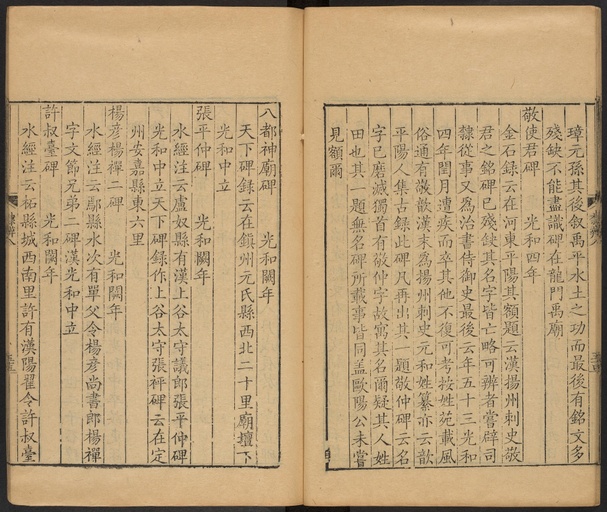 璋元孫其後敘禹平水土之功而最後有銘文多
殘缺不能盡識碑在龍門禹廟
敬使君碑　光和四年
金石録云在河東平陽其額題云漢揚州刺史敬
君之銘碑已殘缺其名字皆亡略可辨者嘗辟司
隸從事又為治書侍御史最後云年五十三光和
四年閏月遭疾而卒其他不復可考按姓苑載風
俗通有敬歆漢末為揚州刺史元和姓纂亦云歆
平陽人集古録此碑凡再出其一題敬仲碑云名
字已磨滅獨首有敬仲字故寓其名爾疑其人姓
田也其一題無名碑所載事皆同蓋歐陽公未嘗
見額爾
八都神廟碑　光和闕年
天下碑録云在鎮州元氏縣西北二十里廟壇下
光和中立
張平仲碑　光和闕年
水經注云盧奴縣有漢上谷太守議郎張平仲碑
光和中立天下碑録作上谷太守張祥碑云在定
州安嘉縣東六里
楊彦楊禪二碑　光和闕年
水經注云鄢縣水次有單父令楊彦尚書郎楊禪
字文節兄弟二碑漢光和中立
許叔臺碑　光和闕年
水經注云柘縣城西南里許有漢陽翟令許叔臺